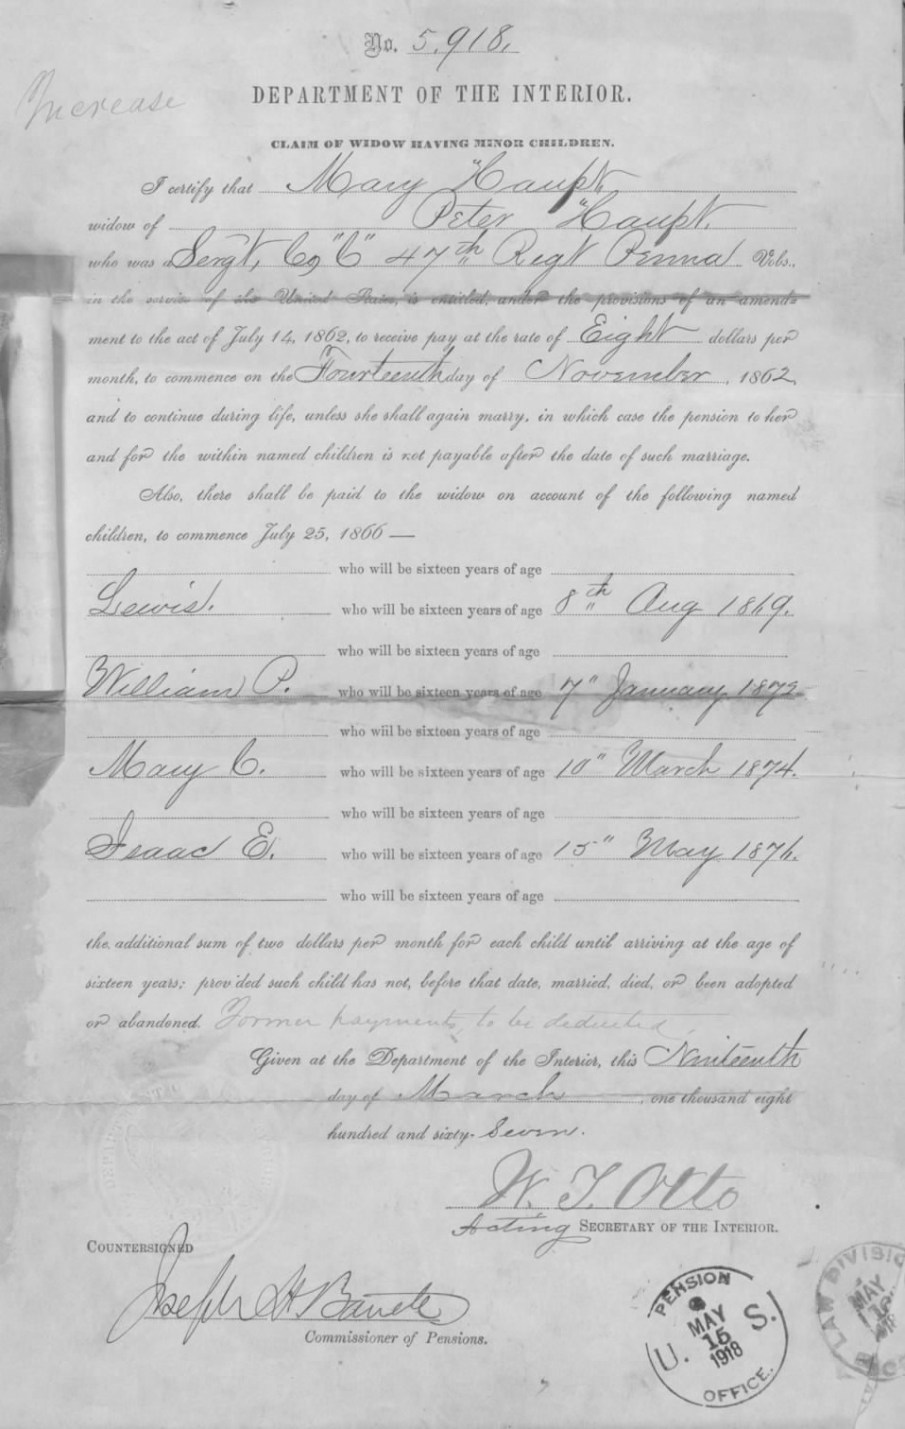 No. 5,918.
Increase
DEPARTMENT OF THE INTERIOR.
CLAIM OF WIDOW HAVING MINOR CHILDREN.
I certify that Mary Haupt,
widow of Peter Haupt,
who was a Sergt, Co "C" 47th Regt Penna Vols.,
in the service of the United States, is entitled, under the provisions of an amend-
ment to the act of July 14, 1862, to receive pay at the rate of Eight dollars per
month, to commence on the Fourteenth day of November, 1862,
and to continue during life, unless she shall again marry, in which case the pension to her
and for the within named children is not payable after the date of such marriage.
Also, there shall be paid to the widow on account of the following named
children, to commence July 25, 1866 —
who will be sixteen years of age
Lewis. who will be sixteen years of age 8th Aug 1869.
who will be sixteen years of age
William P. who will be sixteen years of age 7" January 1872
who will be sixteen years of age
Mary C. who will be sixteen years of age 10" March 1874.
who will be sixteen years of age
Isaac E. who will be sixteen years of age 15" May 1876.
who will be sixteen years of age
the additional sum of two dollars per month for each child until arriving at the age of
sixteen years; provided such child has not, before that date, married, died, or been adopted
or abandoned. Former payments to be deducted.
Given at the Department of the Interior, this Nineteenth
day of March, one thousand eight
hundred and sixty-Seven.
W. T. Otto
Acting SECRETARY OF THE INTERIOR.
COUNTERSIGNED
Joseph H Barrett
Commissioner of Pensions.
PENSION
MAY
15
1918
U. S.
OFFICE.
LAW DIVISION
MAY